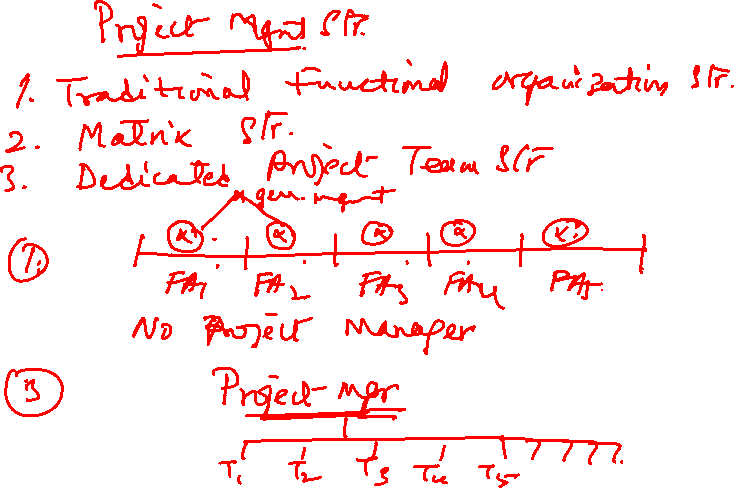 Project Mgmt Str.
1. Traditional Functional organization Str.
2. Matrix Str.
3. Dedicated Project Team Str
gen. mgmt
1.
FA1 FA2 FA3 FA4 FA5
No Project Manager
3 Project mgr
T1 T2 T3 T4 T5